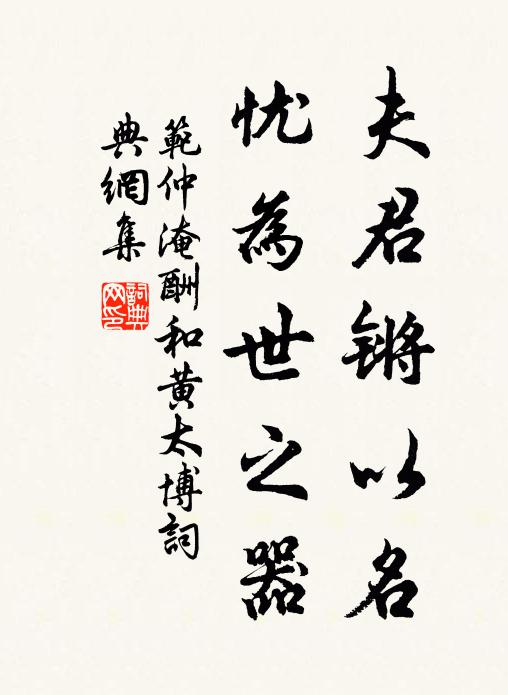 夫君锵以名
忧為世之器
範仲淹酬和黄太博詞
典網集
詞典
网印